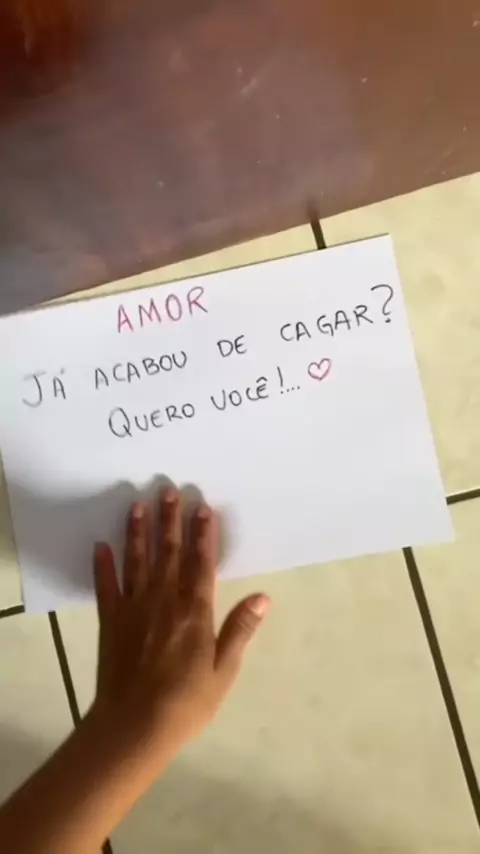 AMOR
JÁ ACABOU DE CAGAR?
QUERO VOCÊ!... ♡